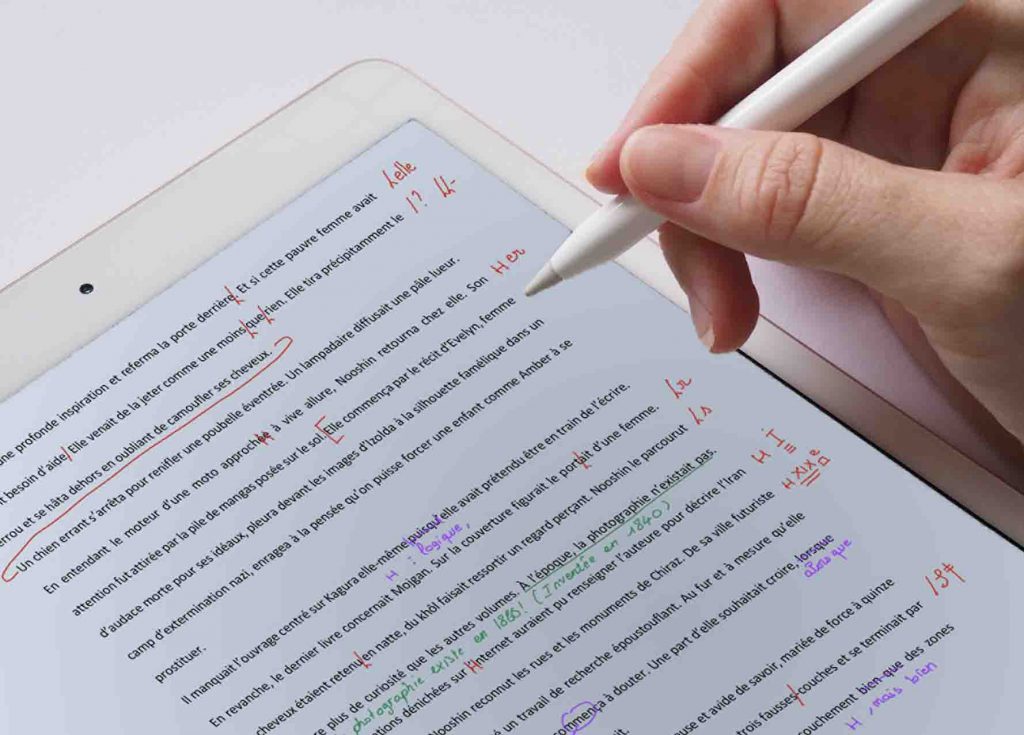 ne profonde inspiration et referma la porte derrière. Et si cette pauvre femme avait
Lelle
t besoin d'aide. Elle venait de la jeter comme une moins que rien. Elle tira précipitamment le
errou et se hâta dehors en oubliant de camoufler ses cheveux.
Un chien errant s'arrêta pour renifler une poubelle éventrée. Un lampadaire diffusait une pâle lueur.
En entendant le moteur d'une moto approchée à vive allure, Nooshin retourna chez elle. Son
H er
attention fut attirée par la pile de mangas posée sur le sol. Elle commença par le récit d'Evelyn, femme
d'audace morte pour ses idéaux, pleura devant les images d'Izolda à la silhouette famélique dans un
camp d'extermination nazi, enragea à la pensée qu'on puisse forcer une enfant comme Amber à se
prostituer.
Il manquait l'ouvrage centré sur Kagura elle-même puisqu'elle avait prétendu être en train de l'écrire.
H : logique,
En revanche, le dernier livre concernait Mojgan. Sur la couverture figurait le portait d'une femme.
Lr
cheveux étaient retenu en natte, du khôl faisait ressortir un regard perçant. Nooshin le parcourut
Ls
e plus de curiosité que les autres volumes. À l'époque, la photographie n'existait pas.
photographie existe en 1886! (Inventée en 1840)
tions dénichées sur internet auraient pu renseigner l'auteure pour décrire l'Iran
H I
Nooshin reconnut les rues et les monuments de Chiraz. De sa ville futuriste
H XIXe
é un travail de recherche époustouflant. Au fur et à mesure qu'elle
ommença à douter. Une part d'elle souhaitait croire, lorsque
ainsi que
it.
euse et avide de savoir, mariée de force à quinze
trois fausses-couches et se terminait par
couchement bien que des zones
H , mais bien